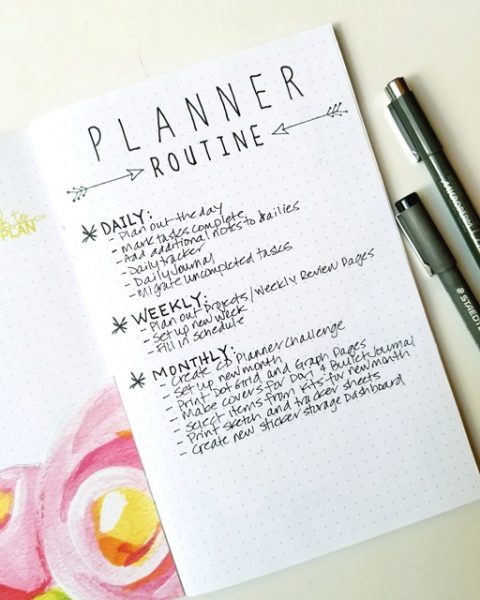 PLANNER
ROUTINE
PLAN
* DAILY:
- Plan out the day
- Mark tasks complete
- Add additional notes to dailies
- Daily tracker
- Daily Journal
- Migrate uncompleted tasks
* WEEKLY:
- Plan out Projects/Weekly Review Pages
- Set up new week
- Fill in schedule
* MONTHLY:
- Create CP Planner Challenge
- Set up new month
- Print Dot Grid and Graph Pages
- Make covers for Day & Bullet Journal
- Select items from Kits for new month
- Print sketch and tracker sheets
- Create new sticker storage Dashboard
STAEDTL